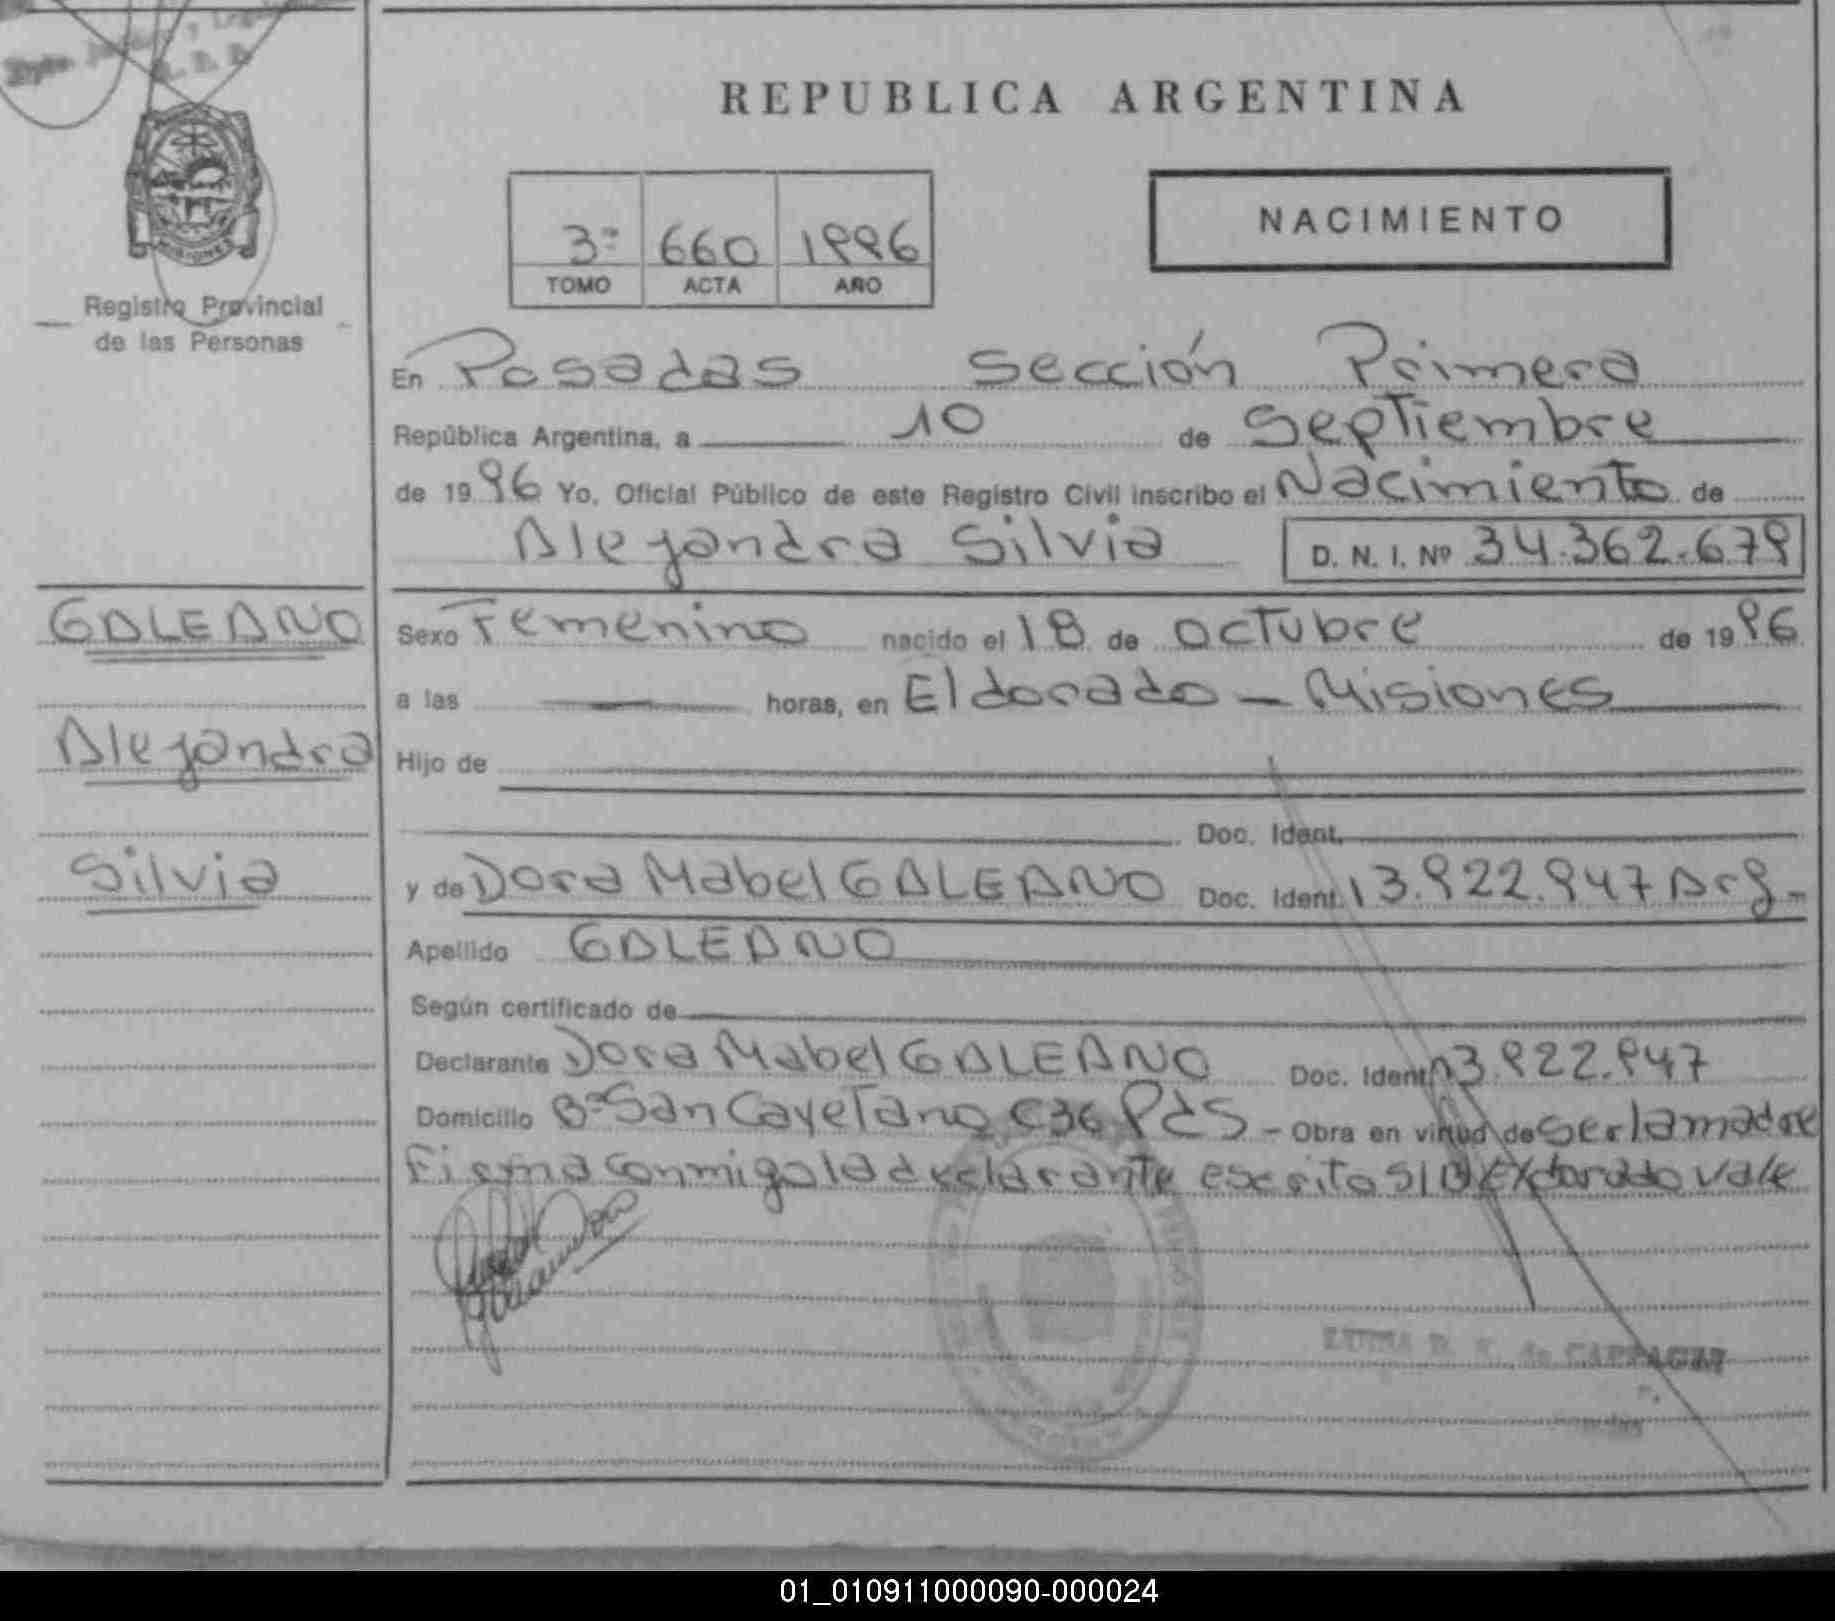 REPUBLICA ARGENTINA
NACIMIENTO
3º 660 1996
TOMO ACTA AÑO
MISIONES
Registro Provincial
de las Personas
En Posadas Sección Primera
República Argentina, a 10 de Septiembre
de 1996 Yo, Oficial Público de este Registro Civil inscribo el Nacimiento de
Alejandra Silvia D. N. I. Nº 34.362.679
GALEANO
Alejandra
Silvia
Sexo Femenino nacido el 18 de octubre de 1996
a las horas, en Eldorado - Misiones
Hijo de
Doc. Ident.
y de Dora Mabel GALEANO Doc. Ident. 13.922.947 Arg-
Apellido GALEANO
Según certificado de
Declarante Dora Mabel GALEANO Doc. Ident. 13.922.947
Domicilio Bº San Cayetano C36 Pds - Obra en virtud de ser la madre
Firma conmigo la declarante escrito S/B Eldorado vale
LUISA de
01_010911000090-000024